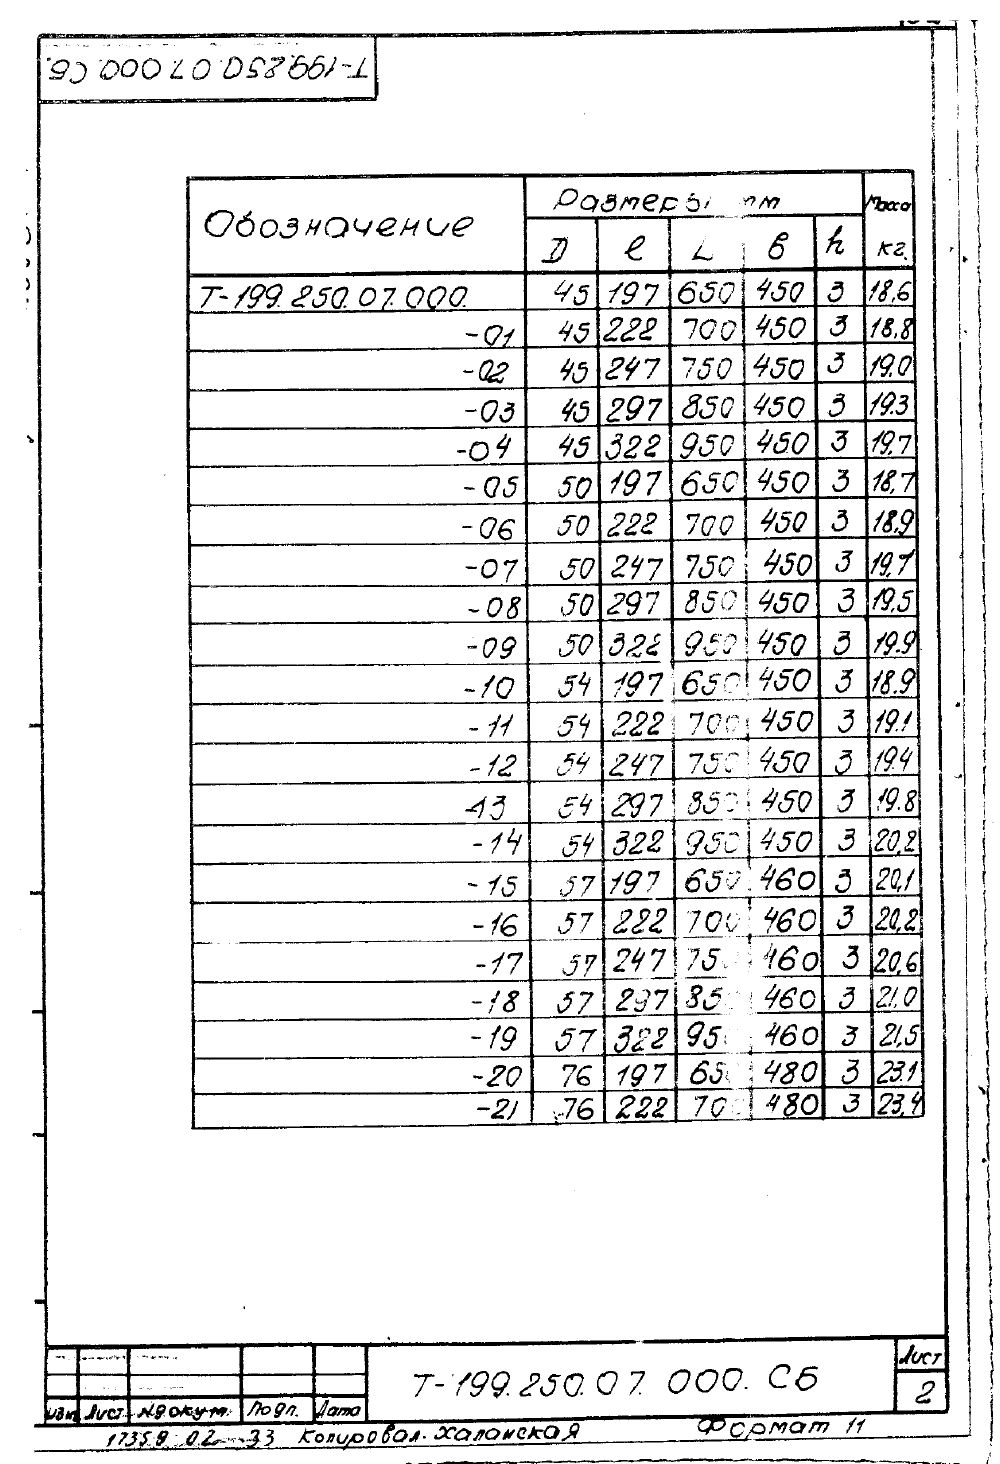 Т-199.250.07.000.СБ
Обозначение Размеры мм Масса кг.
D l L в h
Т-199.250.07.000. 45 197 650 450 3 18,6
-01 45 222 700 450 3 18,8
-02 45 247 750 450 3 19.0
-03 45 297 850 450 3 19.3
-04 45 322 950 450 3 19,7
-05 50 197 650 450 3 18,7
-06 50 222 700 450 3 18.9
-07 50 247 750 450 3
-08 50 297 850 450 3 19.5
-09 50 322 950 450 3 19.9
-10 54 197 650 450 3 18.9
-11 54 222 700 450 3 19.1
-12 54 247 750 450 3 19.4
-13 54 297 850 450 3 19.8
-14 54 322 950 450 3 20,2
-15 57 197 650 460 3 20,1
-16 57 222 700 460 3 20,2
-17 57 247 750 460 3 20,6
-18 57 297 850 460 3 21.0
-19 57 322 950 460 3 21,5
-20 76 197 650 480 3 23.1
-21 76 222 700 480 3 23,4
Т-199.250.07.000.СБ
Лист
2
Изм Лист № докум. Подп. Дата
17359 02 33 Копировал. Халанская Формат 11